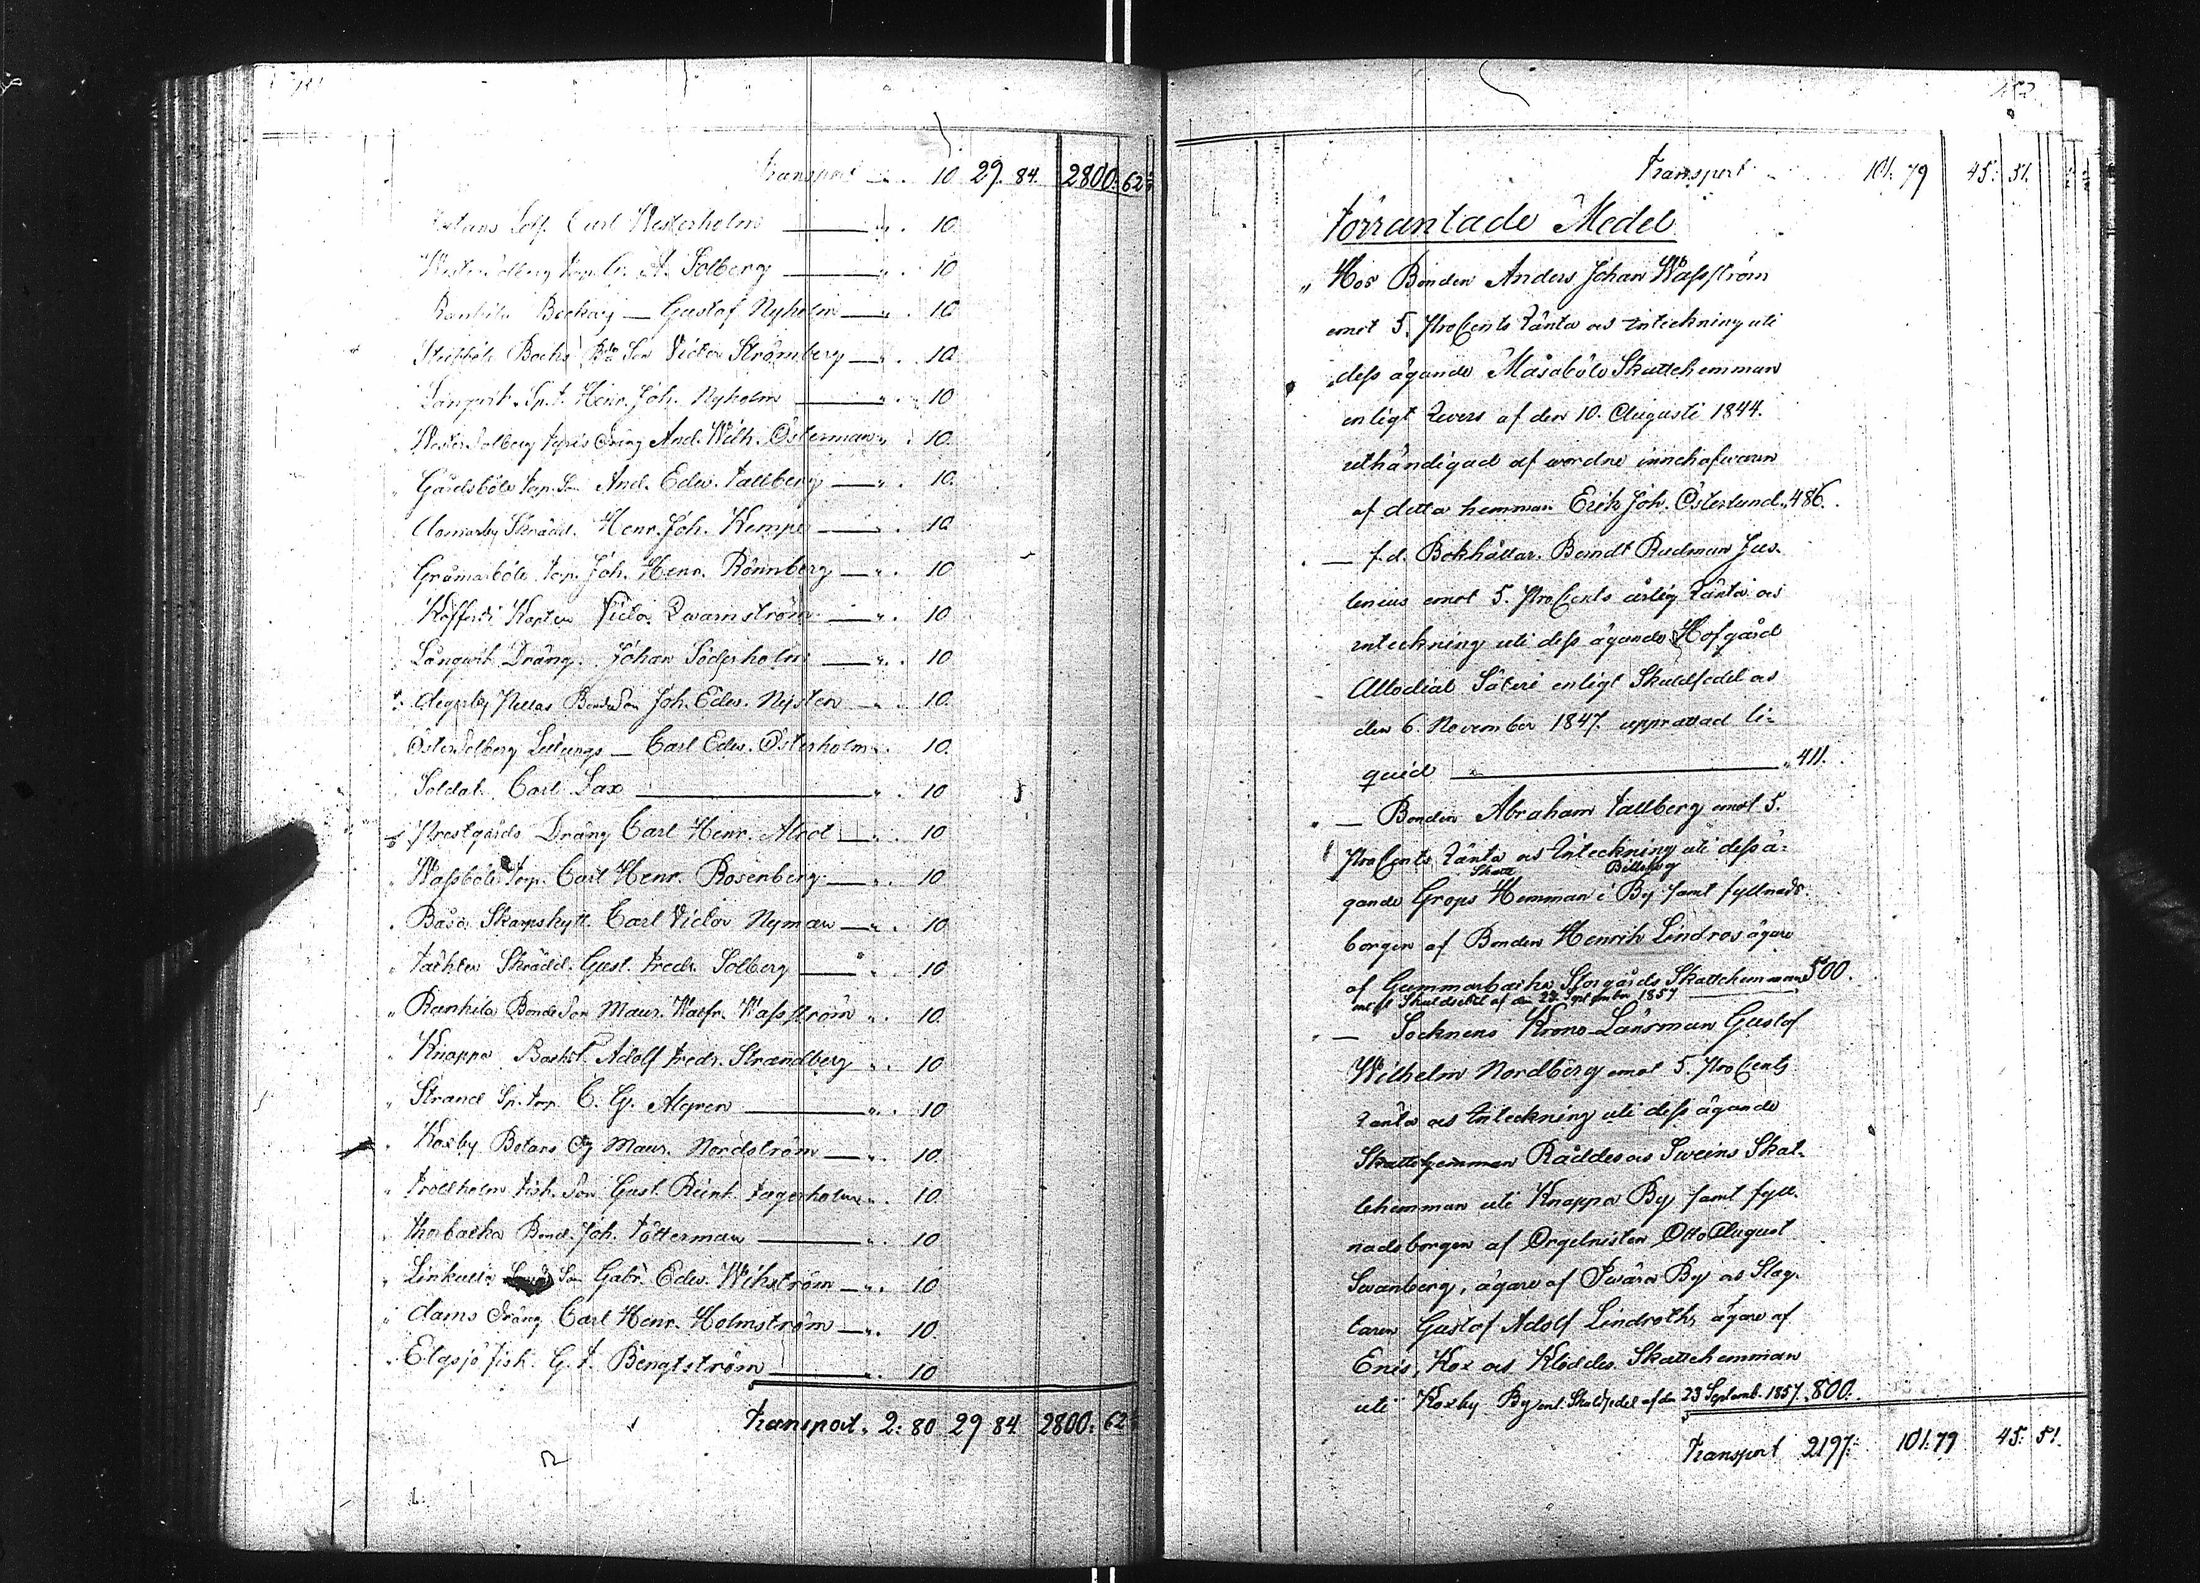 Transport „ . 10 29. 84. 2800: 62
Botans Carl Westerholm — „ . 10.
Wester Solberg torp. G. A. Solberg — „ . 10
Rankila Backarg — Gustaf Nyholm — „ . 10
Backs Bde Son Victor Strömberg — „ . 10.
Långvik Sp.t. Henr. Joh. Nyholm — „ . 10
Wester Solberg torps dräng And. Wilh. Österman „ . 10.
Gårdsböle torp. Son And. Edw. Tallberg — „ . 10.
Skrädd. Henr. Joh. Kempe — „ . 10
Gråmarböle torp. Joh. Henr. Rönnberg — „ . 10
Kofferdi Kapten Victor Qwarnström — „ . 10
Långwik Dräng. Johan Söderholm — „ . 10
Degerby Nissas Bonde Son Joh. Edw. Nysten — „ . 10.
Öster Solberg — Carl Edw. Österholm „ . 10.
Soldat. Carl Lax — „ . 10
Prestgårds Dräng Carl Henr. Alrot — „ . 10
Wassböle Torp. Carl Henr. Rosenberg — „ . 10
Båsa Skarpskytt. Carl Victor Nyman — „ . 10
Täkter Skrädd. Gust. Fredr. Solberg — „ . 10
„ Rankila Bonde Son Maur. Walfr. Wasström „ . 10.
„ Knappa Backst. Adolf Fredr. Strandberg „ . 10
„ Strand Sp. torp. C. G. Algren — „ . 10
„ Koxby Botans Dg Maur. Nordström — „ . 10.
„ Trollholm Fisk. Son Gust. Reinh. Fagerholm „ . 10.
„ Thorbacka Bond. Joh. Tötterman — „ . 10
„ Linkulla Son Gabr. Edw. Wikström — „ . 10
„ dams Dräng Carl Henr. Holmström — „ . 10.
„ Elgsjö fisk. G. F. Bengtström — „ . 10
Transport „ 2: 80 29 84. 2800: 62
Transport 101: 79 45: 51.
Förräntade Medel
„ Hos Bonden Anders Johan Wasström
emot 5. ProCents Ränta och Inteckning uti
dess ägande Måsaböle Skattehemman
enligt Revers af den 10. Augusti 1844.
uthändigad af wordne innehafwaren
af detta hemman Erik Joh. Österlund „ 486.
„ — f.d. Bokhållar. Berndt Rudman Jus-
lenius emot 5. ProCents årlig Ränta och
inteckning uti dess ägande Hofgård
Allodial Säteri enligt Skuldsedel och
den 6. November 1847. upprättad li-
quid — „ 411.
„ — Bonden Abraham Tallberg emot 5.
ProCents Ränta och Inteckning uti dess ä-
Skatte Billskog
gande Grops Hemman i By samt fyllnads-
borgen af Bonden Henrik Lindros ägare
af Gammarbacka Storgårds Skattehemman 500.
enl Skuldsedel af den 23 September 1857 —
„ — Socknens Krono-Länsman Gustaf
Wilhelm Nordberg emot 5. ProCents
Ränta och Inteckning uti dess ägande
Skattehemman Råddes och Sweins Skat-
tehemman uti Knappa By samt fyll-
nadsborgen af Orgelnisten Otto August
Swanberg, ägare af Swärs By och Slag-
taren Gustaf Adolf Lindroth, ägare af
Enis, Kox och Kloddes Skattehemman
uti Koxby By enl Skuldsedel af den 23 Septemb. 1857. 800.
Transport 2197: 101: 79 45: 51.